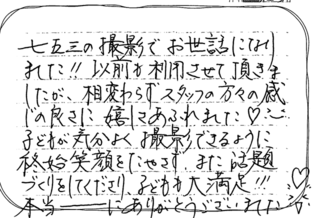 七五三の撮影でお世話になり
ました!! 以前も利用させて頂きま
したが、相変わらずスタッフの方々の感
じの良さに 嬉しさあふれました♡
子どもが気分よく 撮影できるように
終始笑顔をたやさず、また 話題
づくりをしてくださり、子どもも大満足!!!
本当ーーにありがとうございました♡